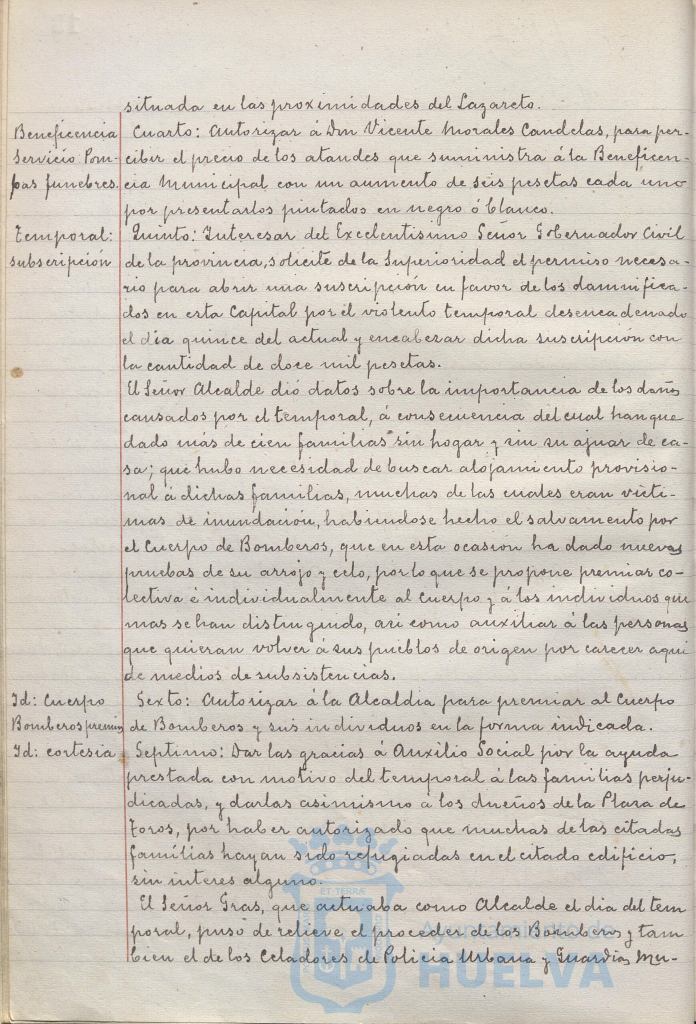 situada en las proximidades del Lazareto.
Beneficencia
Servicio Pom-
pas funebres.
Cuarto: Autorizar á Don Vicente Morales Candelas, para per-
cibir el precio de los ataudes que suministra á la Beneficen-
cia Municipal con un aumento de seis pesetas cada uno
por presentarlos pintados en negro ó blanco.
Temporal:
subscripción
Quinto: Interesar del Excelentisimo Señor Gobernador Civil
de la provincia, solicite de la Superioridad el permiso necesa-
rio para abrir una suscripción en favor de los damnifica-
dos en esta Capital por el violento temporal desencadenado
el dia quince del actual y encabezar dicha suscripción con
la cantidad de doce mil pesetas.
El Señor Alcalde dió datos sobre la importancia de los daños
causados por el temporal, á consecuencia del cual han que
dado más de cien familias sin hogar y sin su ajuar de ca-
sa; que hubo necesidad de buscar alojamiento provisio-
nal á dichas familias, muchas de las cuales eran vícti-
mas de inundación, habiendose hecho el salvamento por
el Cuerpo de Bomberos, que en esta ocasión ha dado nuevas
pruebas de su arrojo y celo, por lo que se propone premiar co-
lectiva é individualmente al cuerpo y á los individuos que
mas se han distinguido, asi como auxiliar á las personas
que quieran volver á sus pueblos de origen por carecer aqui
de medios de subsistencias.
Id: Cuerpo
Bomberos premio
Sexto: Autorizar á la Alcaldia para premiar al Cuerpo
de Bomberos y sus individuos en la forma indicada.
Id: cortesia
Septimo: Dar las gracias á Auxilio Social por la ayuda
prestada con motivo del temporal á las familias perju-
dicadas, y darlas asimismo á los dueños de la Plaza de
Toros, por haber autorizado que muchas de las citadas
familias hayan sido refugiadas en el citado edificio,
sin interes alguno.
El Señor Gras, que actuaba como Alcalde el dia del tem
poral, puso de relieve el proceder de los Bomberos y tam
bien el de los Celadores de Policia Urbana y Guardias Mu-
ET TERRÆ
Ayuntamiento de
HUELVA